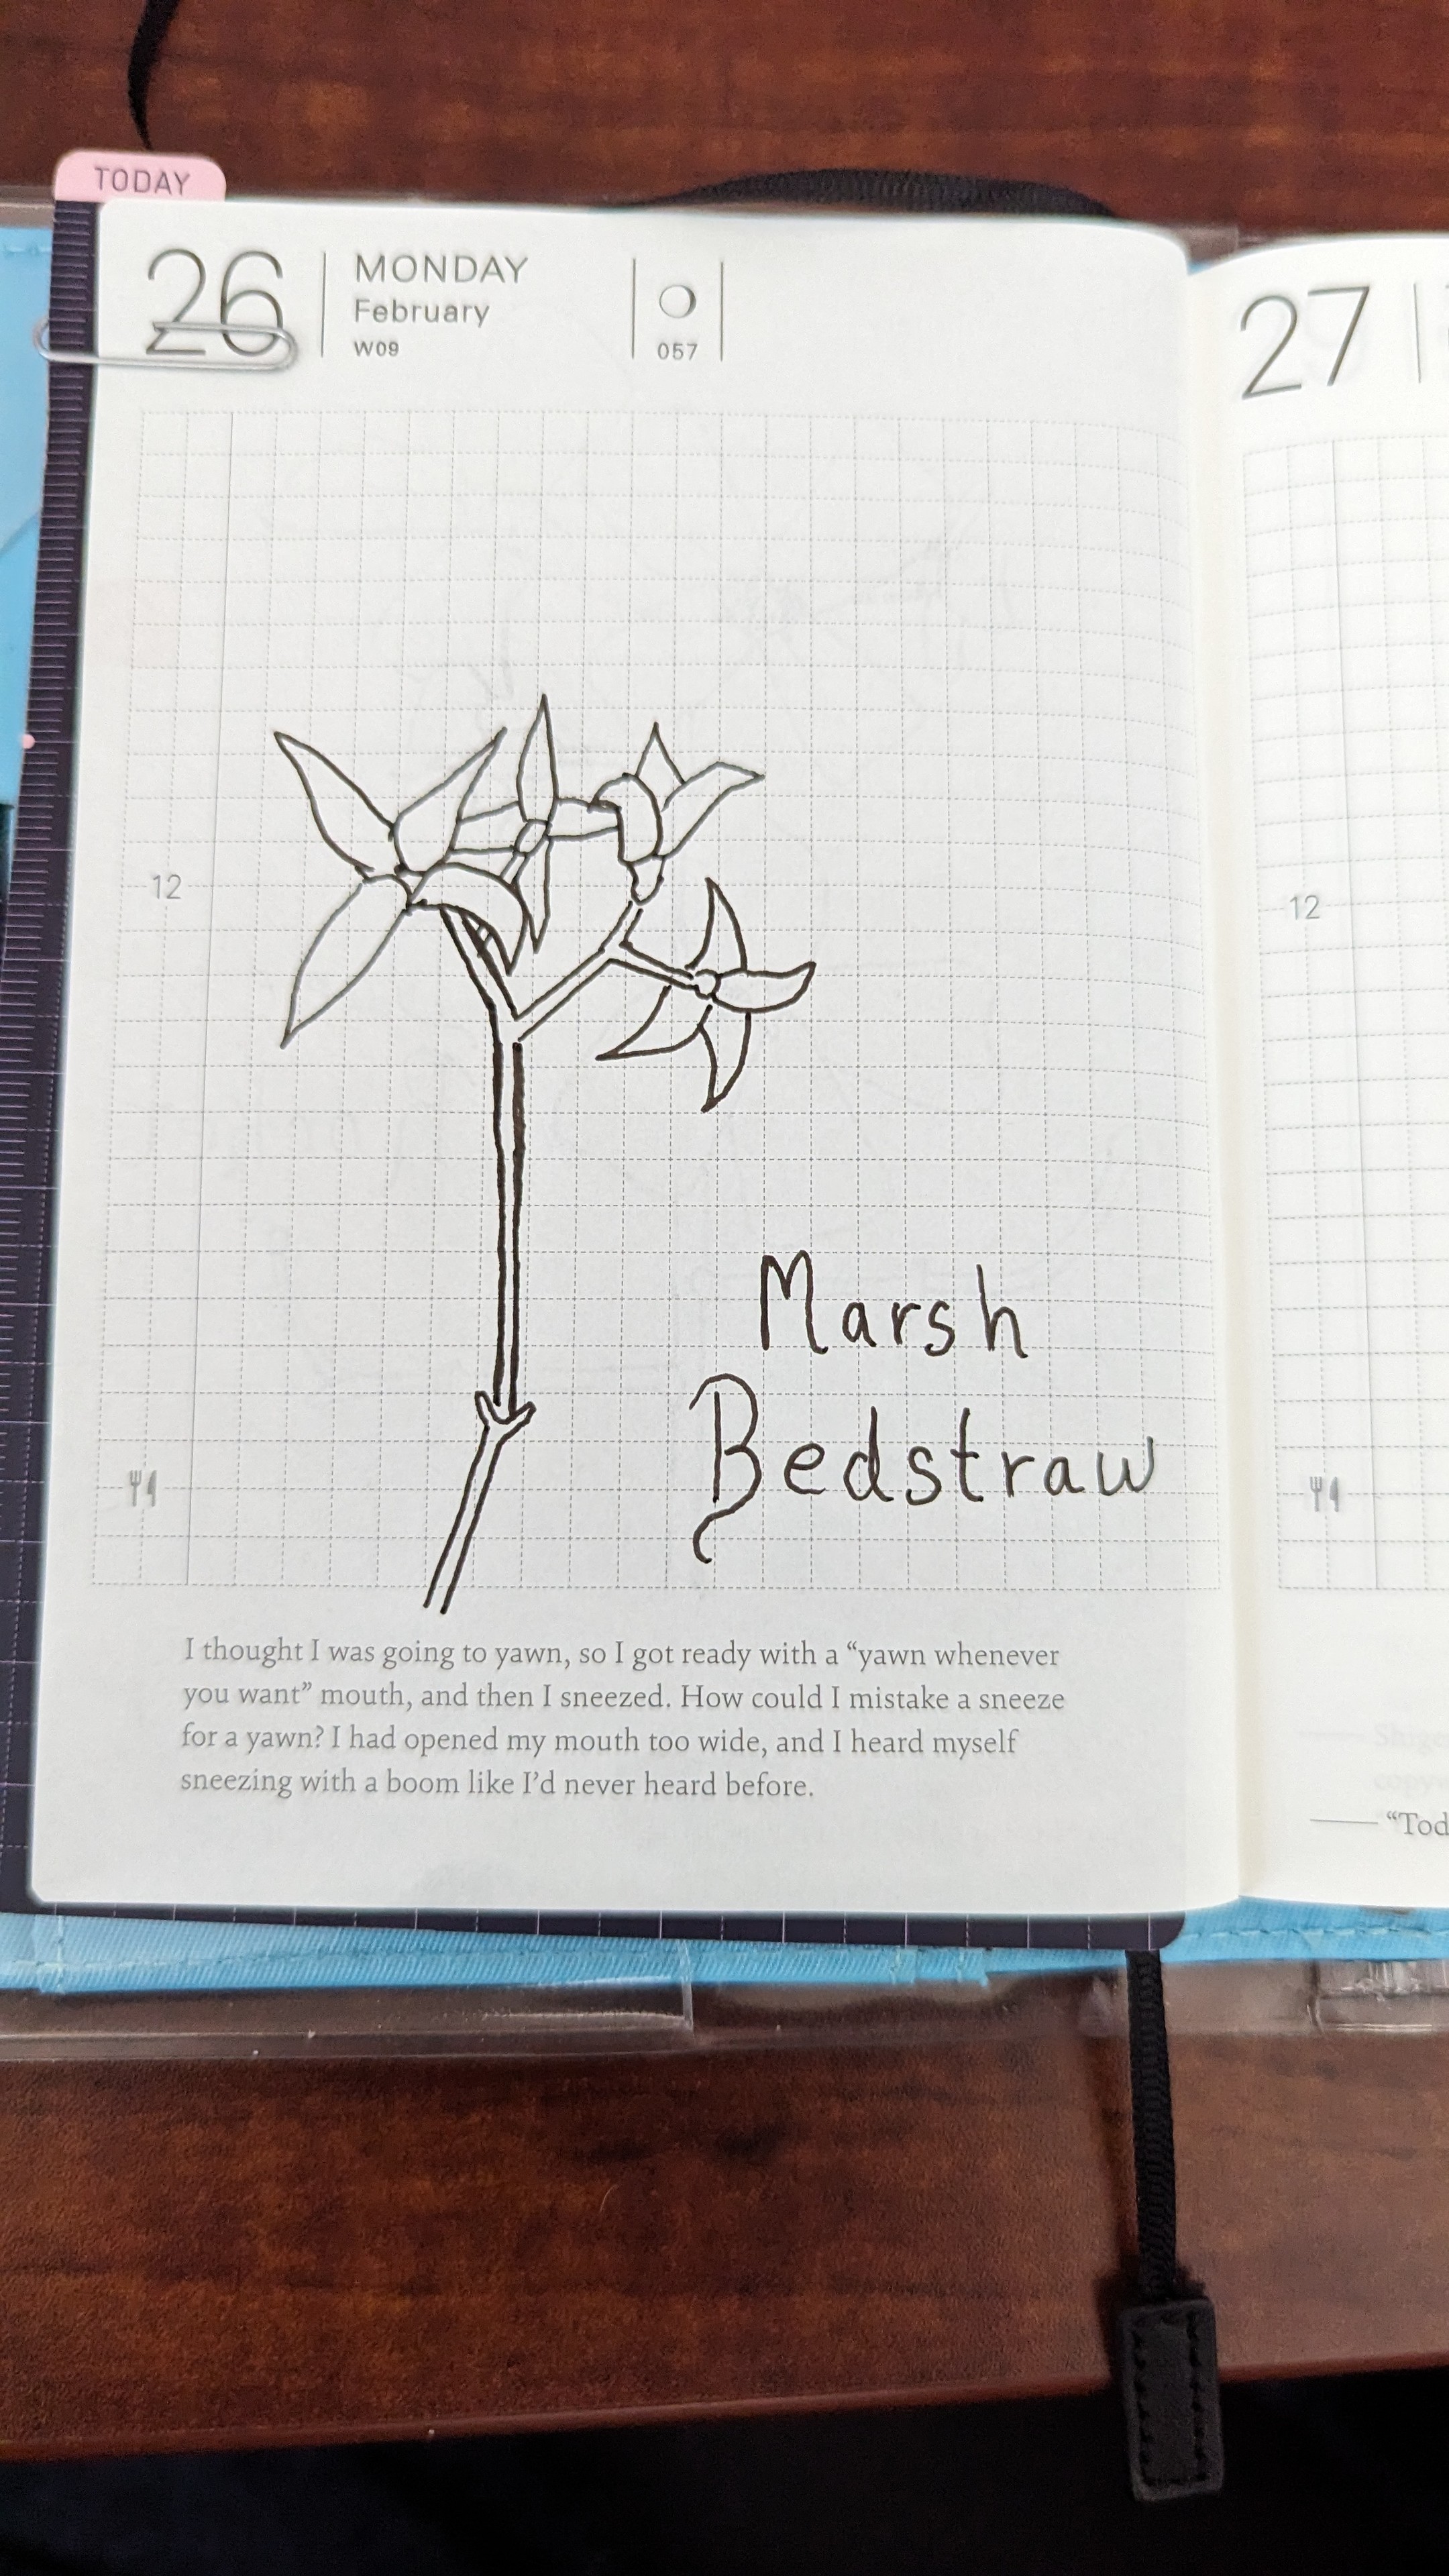 TODAY
26
MONDAY
February
W09
057
27
12
12
Marsh
Bedstraw
I thought I was going to yawn, so I got ready with a “yawn whenever
you want” mouth, and then I sneezed. How could I mistake a sneeze
for a yawn? I had opened my mouth too wide, and I heard myself
sneezing with a boom like I’d never heard before.
“Tod